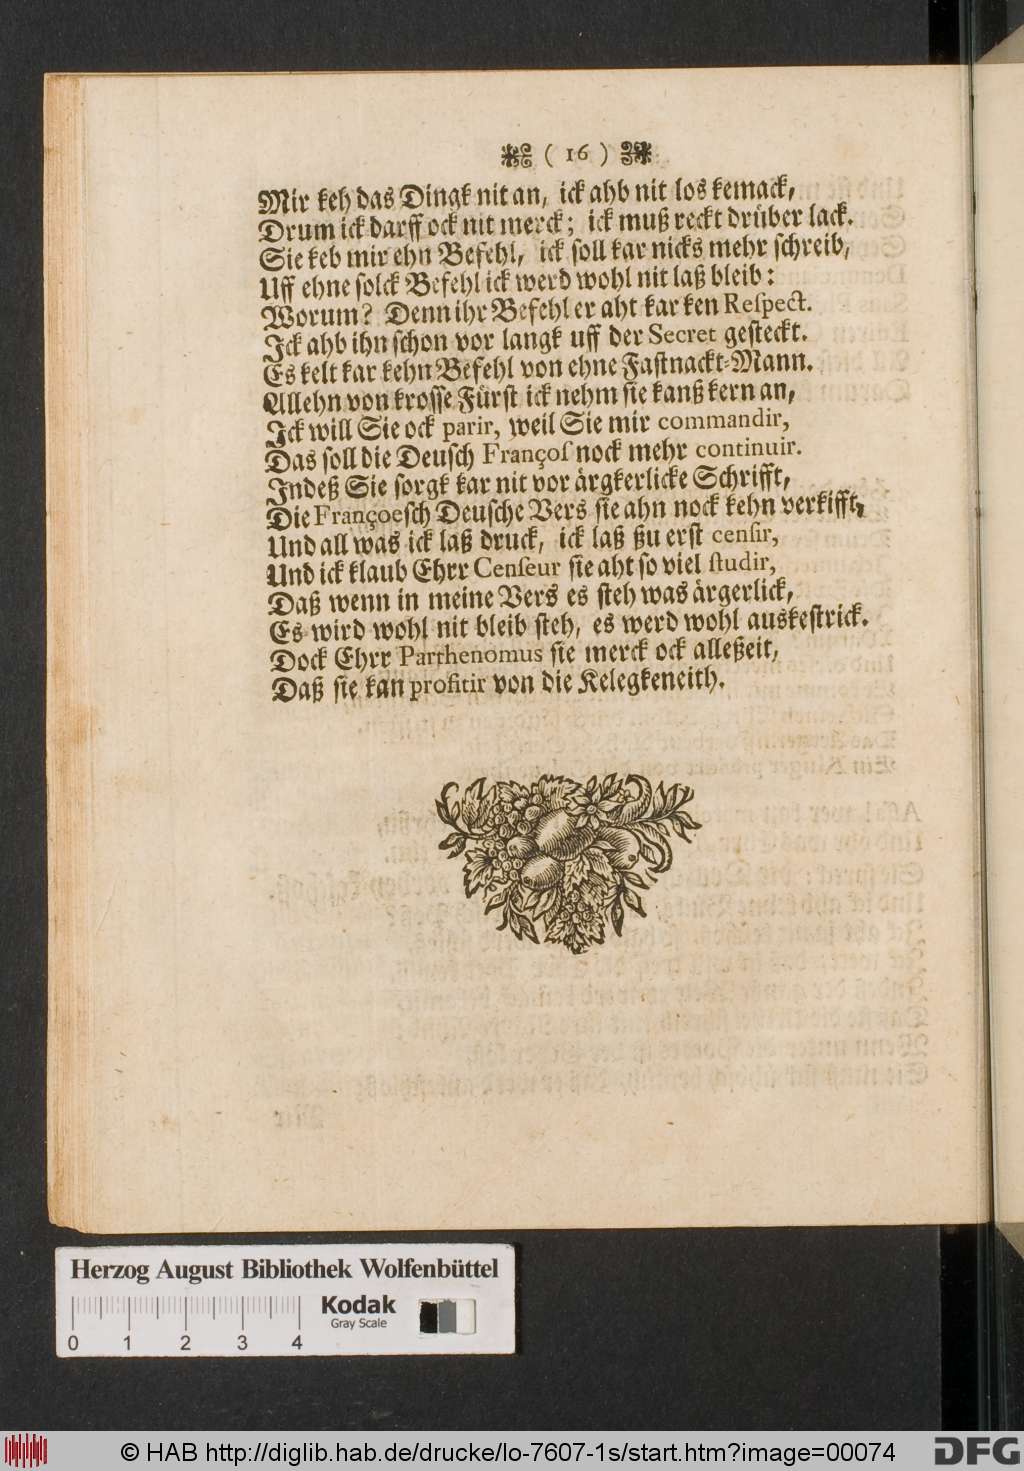 ( 16 )
Mir keh das Dingk nit an, ick ahb nit los kemack,
Drum ick darff ock nit merck; ick muß reckt drüber lack.
Sie keb mir ehn Befehl, ick soll kar nicks mehr schreib,
Uff ehne solck Befehl ick werd wohl nit laß bleib:
Worum? Denn ihr Befehl er aht kar ken Reſpect.
Ick ahb ihn schon vor langk uff der Secret gesteckt.
Es kelt kar kehn Befehl von ehne Fastnackt-Mann.
Allehn von krosse Fürst ick nehm sie kanß kern an,
Ick will Sie ock parir, weil Sie mir commandir,
Das soll die Deusch Françoſ nock mehr continuir.
Indeß Sie sorgk kar nit vor ärgkerlicke Schrifft,
Die Françoesch Deusche Vers sie ahn nock kehn verkifft,
Und all was ick laß druck, ick laß ßu erst cenſir,
Und ick klaub Ehrr Cenſeur sie aht so viel ſtudir,
Daß wenn in meine Vers es steh was ärgerlick,
Es wird wohl nit bleib steh, es werd wohl auskestrick.
Dock Ehrr Parthenomus sie merck ock alleßeit,
Daß sie kan profitir von die Kelegkeneith.
Herzog August Bibliothek Wolfenbüttel
Kodak
Gray Scale
0 1 2 3 4
© HAB http://diglib.hab.de/drucke/lo-7607-1s/start.htm?image=00074
DFG